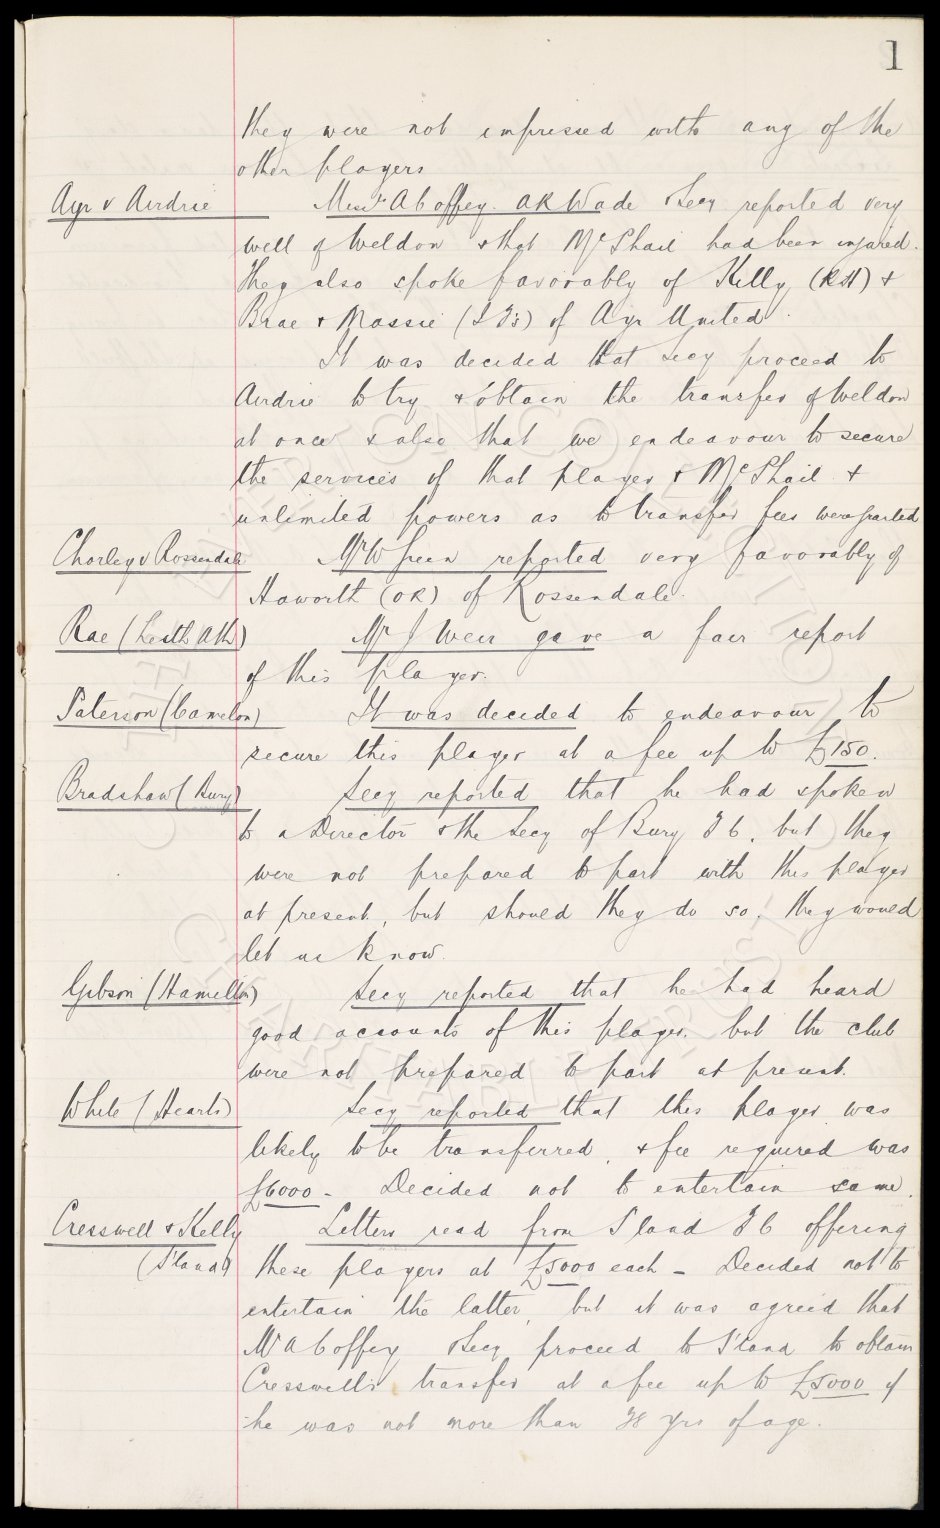 1
they were not impressed with any of the
other players
Ayr v Airdrie Messrs A Coffey. A R Wade & Secy reported very
well of Weldon & that McPhail had been injured.
They also spoke favorably of Kelly (RH) &
Brae & Massie (IFs) of Ayr United.
It was decided that Secy proceed to
Airdrie to try & obtain the transfer of Weldon
at once & also that we endeavour to secure
the services of that player & McPhail &
unlimited powers as to transfer fees were granted
Chorley v Rossendale Mr W Green reported very favorably of
Haworth (OR) of Rossendale.
Rae (Leith Ath) Mr J Weir gave a fair report
of this player.
Paterson (Camelon) It was decided to endeavour to
secure this player at a fee up to £150.
Bradshaw (Bury) Secy reported that he had spoken
to a Director & the Secy of Bury F C, but they
were not prepared to part with this player
at present, but should they do so, they would
let us know.
Gibson (Hamilton) Secy reported that he had heard
good accounts of this player. but the club
were not prepared to part at present.
White (Hearts) Secy reported that this player was
likely to be transferred, & fee required was
£6000 - Decided not to entertain same.
Cresswell & Kelly Letters read from S'land F C offering
(S'land) these players at £5000 each - Decided not to
entertain the latter, but it was agreed that
Mr A Coffey & Secy proceed to S'land to obtain
Cresswell's transfer at a fee up to £5000 if
he was not more than 28 yrs of age.
EVERTON COLLECTION
CHARITABLE TRUST